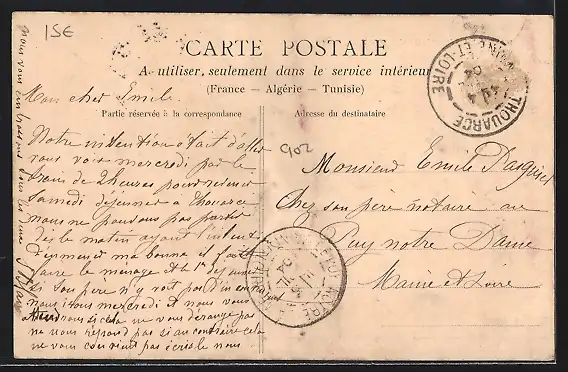 15E
CARTE POSTALE
A utiliser, seulement dans le service intérieur
(France — Algérie — Tunisie)
Partie réservée à la correspondance
Adresse du destinataire
902
Mon cher Emile
Notre intention était d'aller
vous voir mercredi par le
train de 2 heures pour revenir
Samedi déjeuner à Thouarcé
nous ne pouvons pas partir
dès le matin ayant
ma bonne il faut
faire le ménage et
si ton père n'y voit pas d'inconvénient
nous irons mercredi et nous vous
attendrons si cela ne vous dérange pas
ne nous répond pas si au contraire cela
ne vous convient pas écris le nous
nous vous embrassons tous
Monsieur Emile
Chez son père notaire au
Puy notre Dame
Maine et Loire
THOUARCÉ
MAINE-ET-LOIRE
04